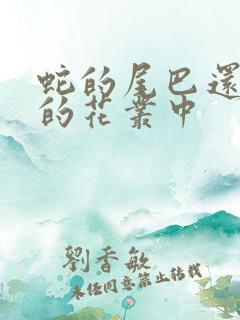 蛇的尾巴還
的花叢中
劉香敏
未任同意禁止转载